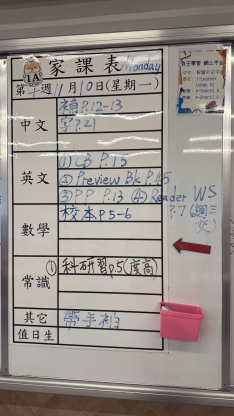 1A
家課表
Monday
第 週 11月10日(星期一)
中文
補 P.12-13
字 P.21
英文
(1) CB P.15
② Preview Bk P.15
③ PP P.13 ④ Reader WS
P.7 (週三交)
數學
校本 P.5-6
常識
① 科研習 P.5 (度高)
其它
帶手袖
值日生
自主學習 網上平台